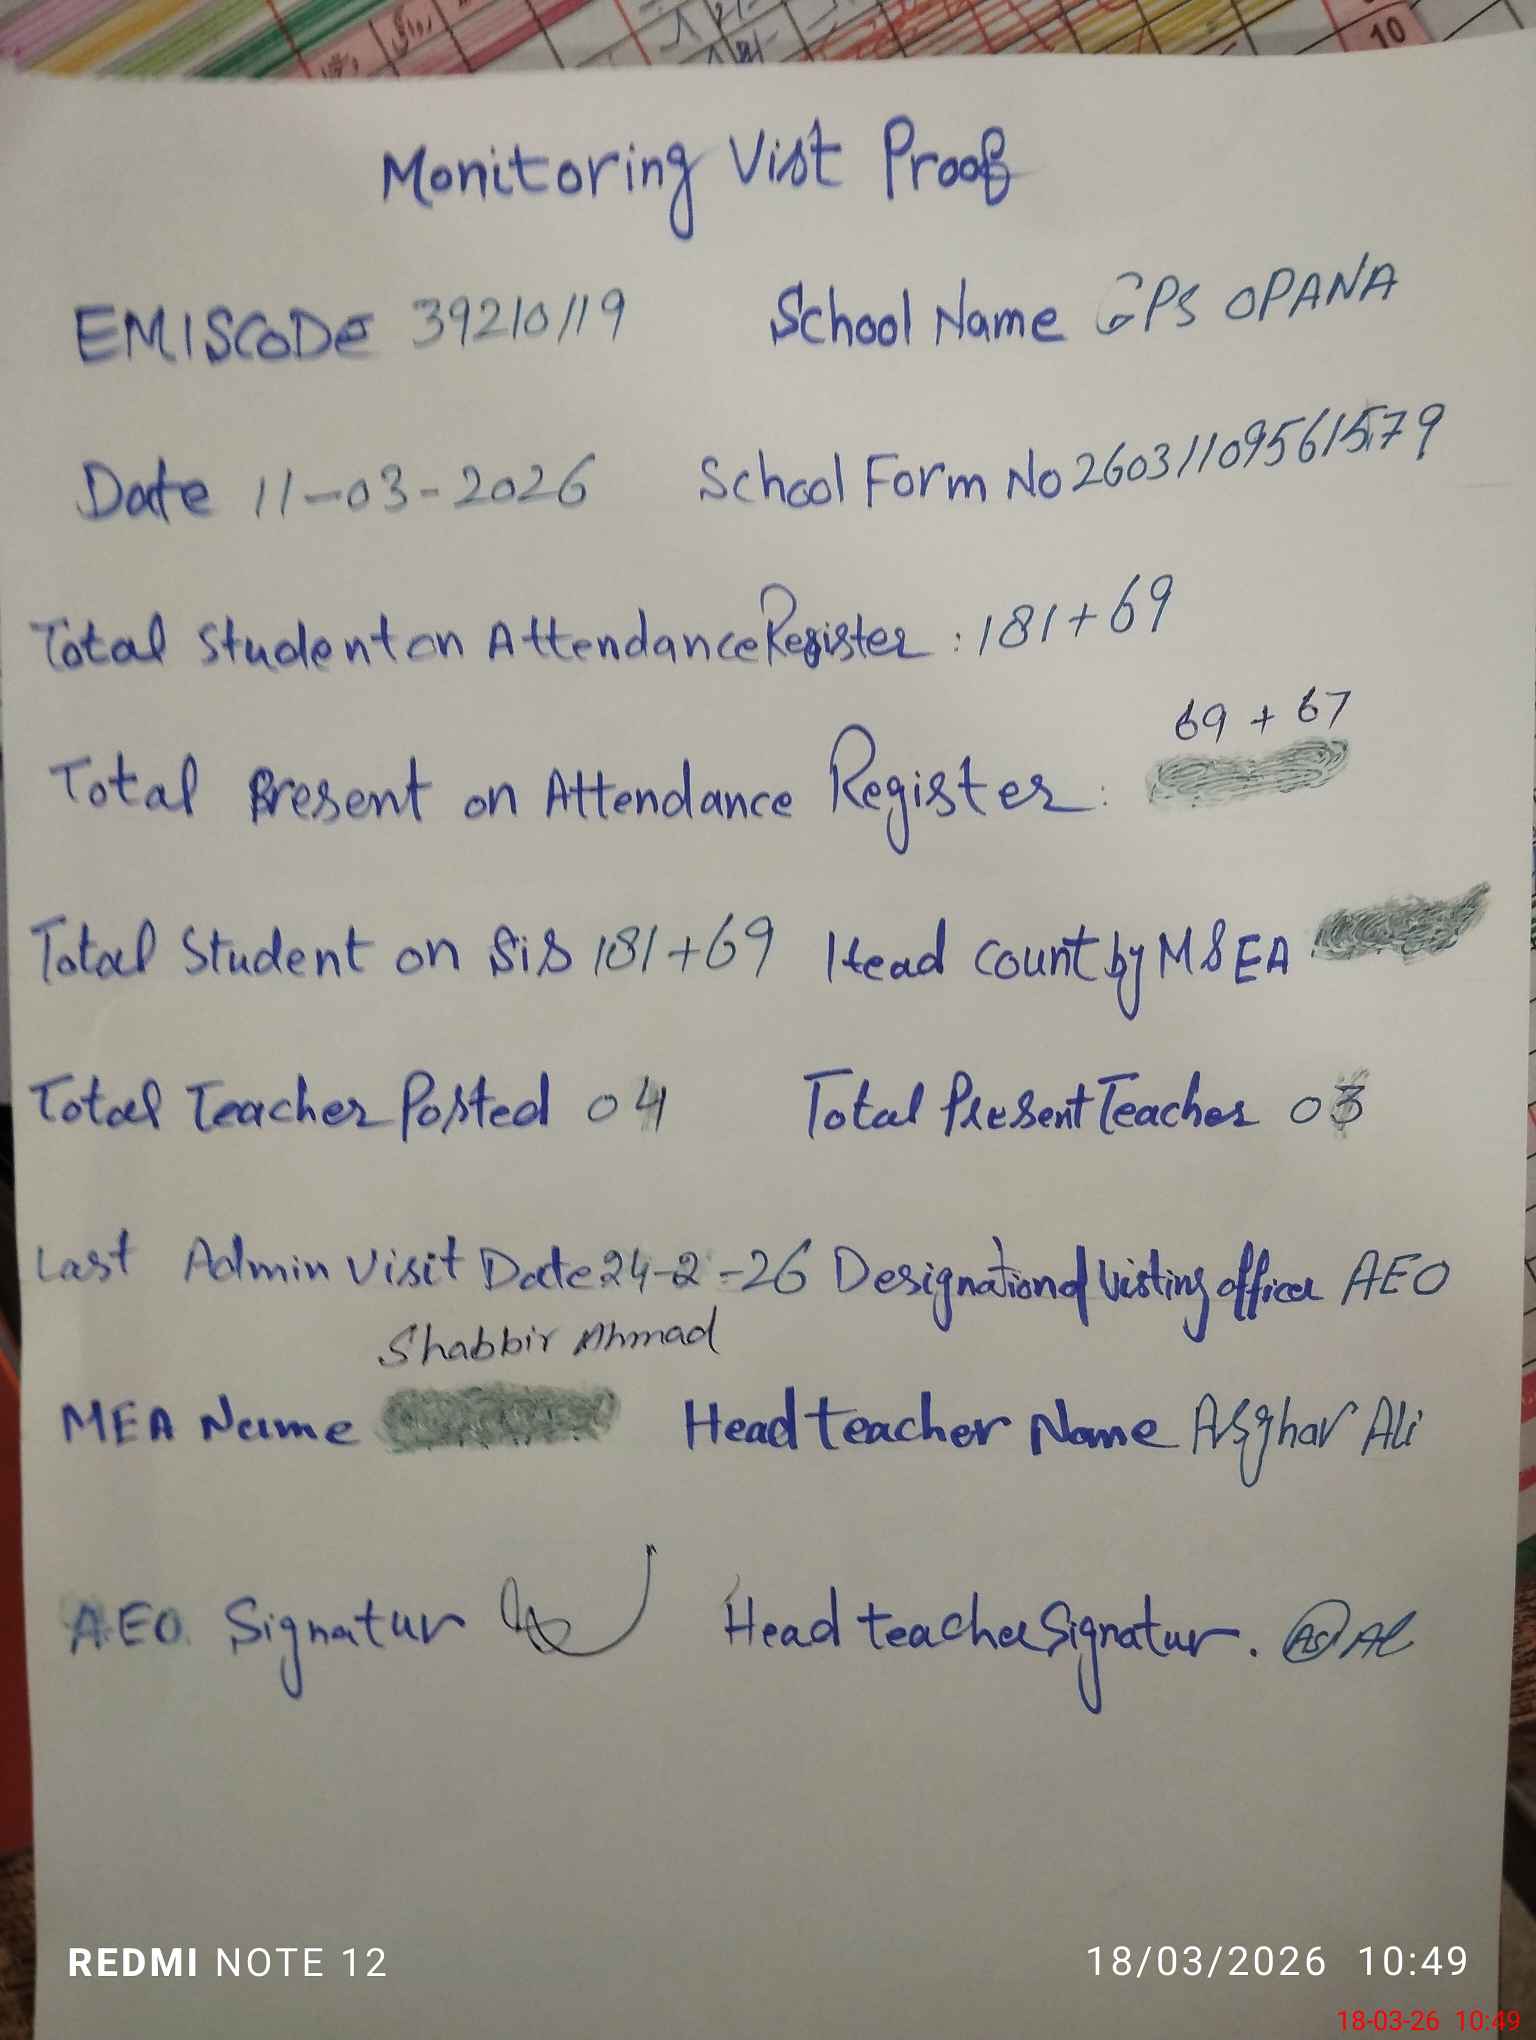 Monitoring Vist Proof
EMISCODE 39210119 School Name GPS OPANA
Date 11-03-2026 School Form No 2603110956 1579
Total Student on Attendance Register : 181+69
69 + 67
Total Present on Attendance Register :
Total Student on SiS 181+69 Head count by MSEA
Total Teacher Posted 04 Total Present Teacher 03
Last Admin Visit Date 24-2-26 Designation of Visting officer AEO
Shabbir Ahmad
MEA Name Head teacher Name Asghar Ali
AEO Signatur Head teacher Signatur.
REDMI NOTE 12 18/03/2026 10:49
18-03-26 10:49